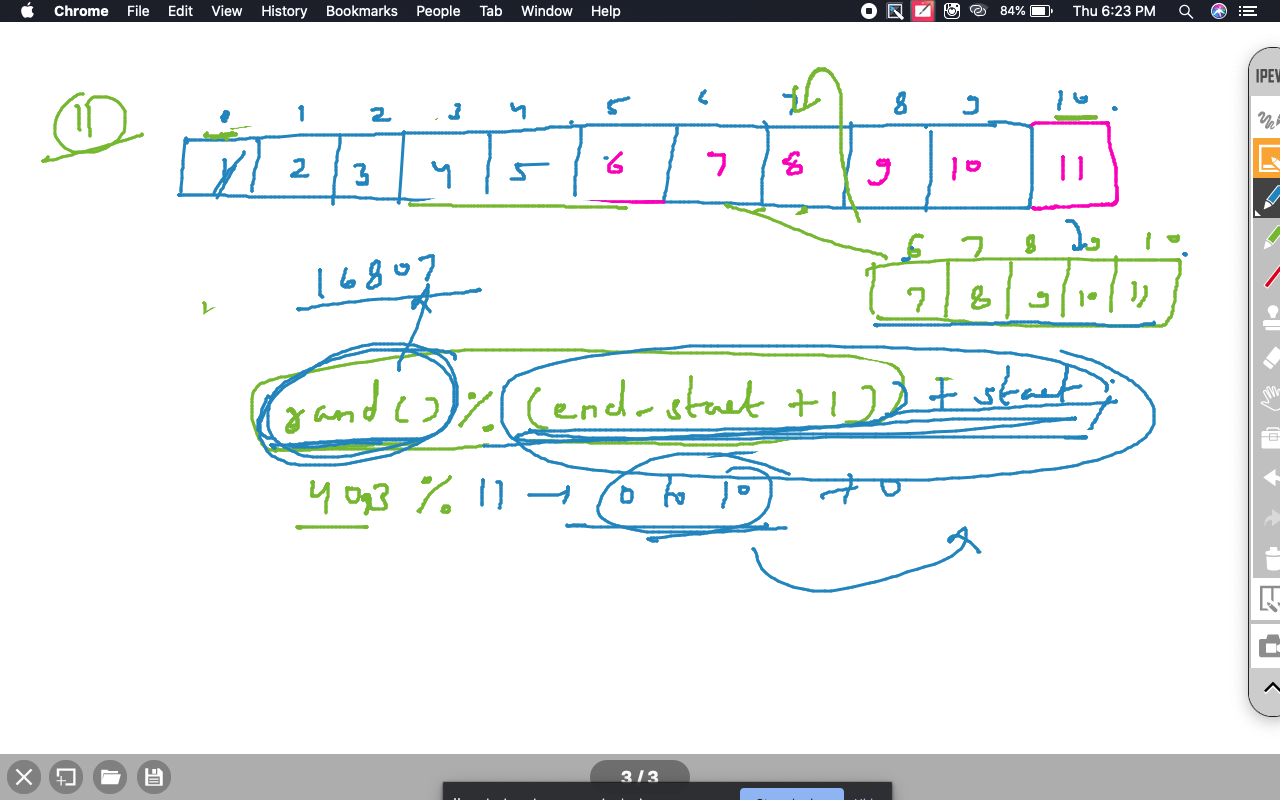 Chrome File Edit View History Bookmarks People Tab Window Help 84% Thu 6:23 PM
IPEV
11
0 1 2 3 4 5 6 7 8 9 10
1 2 3 4 5 6 7 8 9 10 11
6 7 8 9 10
7 8 9 10 11
16807
rand() % (end - start + 1)) + start;
4093 % 11 → 0 to 10 + 0
3 / 3